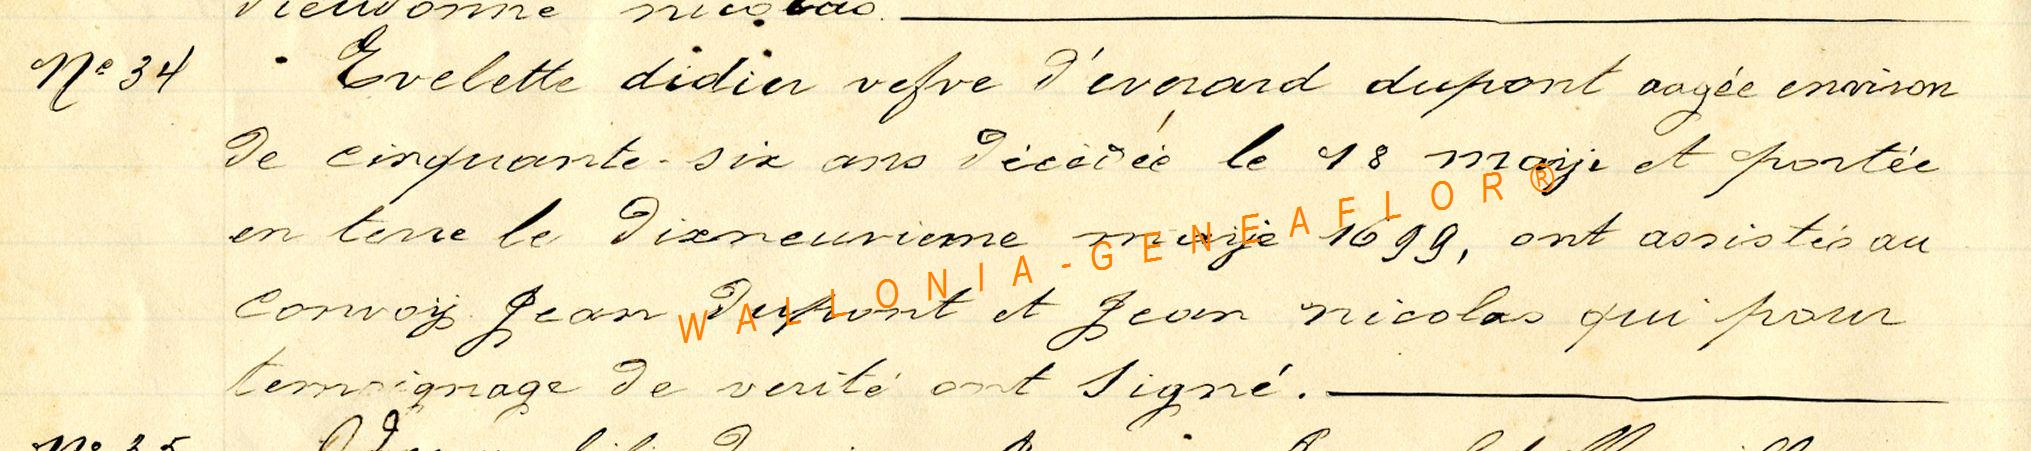 dieudonné nicolas.
N° 34 Evelette didier vefve d'everard dupont aagée environ
de cinquante-six ans décédée le 18 maije et portée
en terre le dixneuvieme maije 1699, ont assistés au
convoij Jean dupont et Jean nicolas qui pour
temoignage de verité ont signé.
WALLONIA-GENEAFLOR®
N° 35